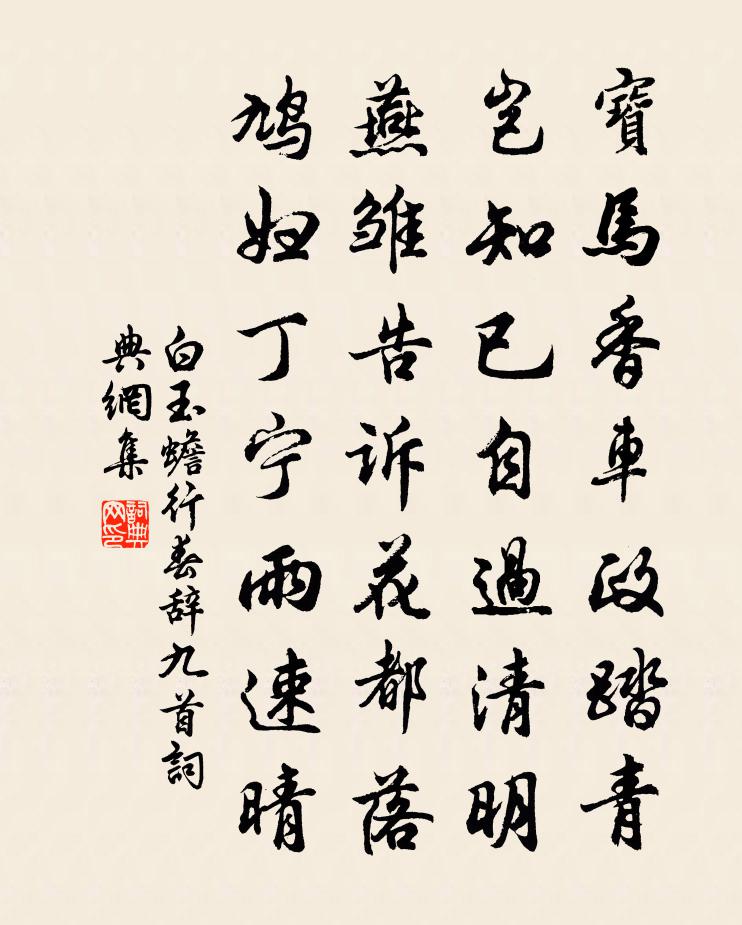 寶馬香車政踏青
豈知已自過清明
燕雏告訴花都落
鳩妇丁宁雨速晴
白玉蟾行春辞九首詞
典網集
詞典网印